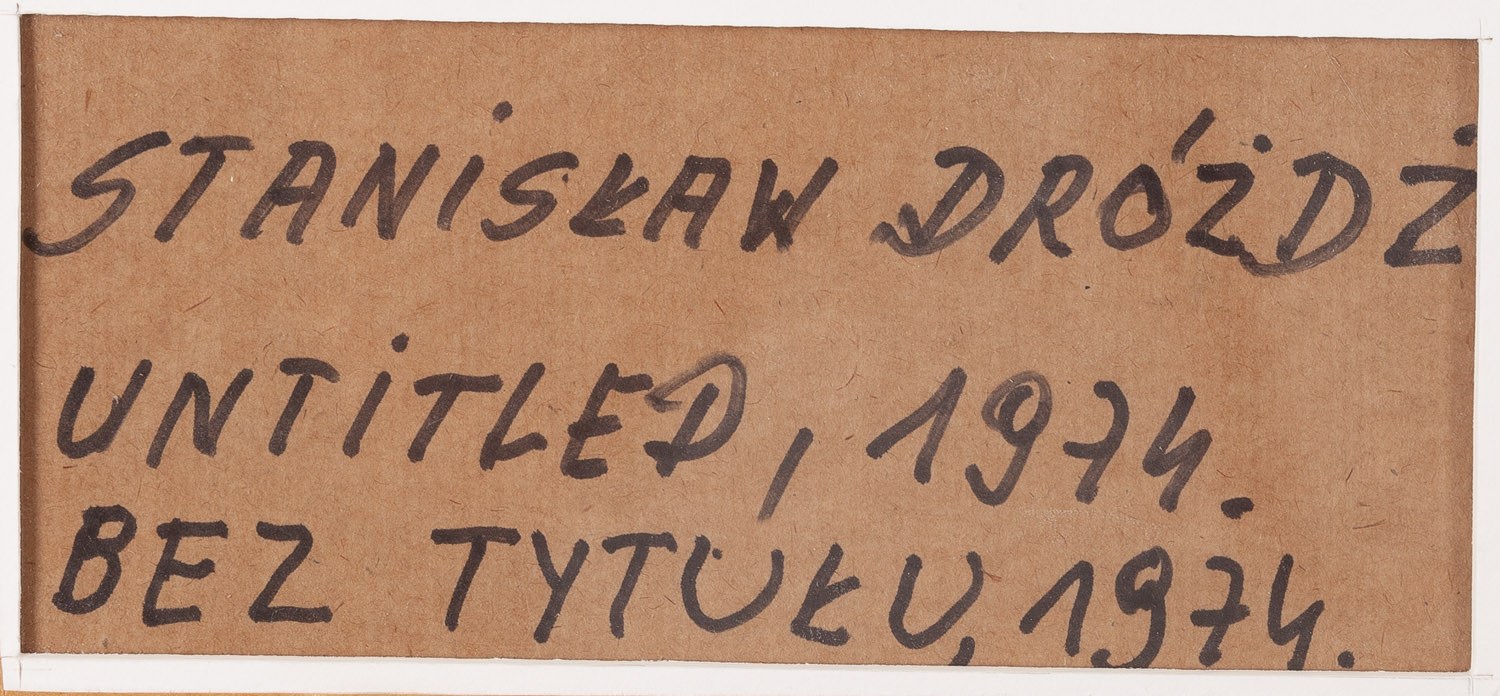 STANiSŁAW DRÓŻDŻ
UNTiTLED, 1974.
BEZ TYTUŁU, 1974.